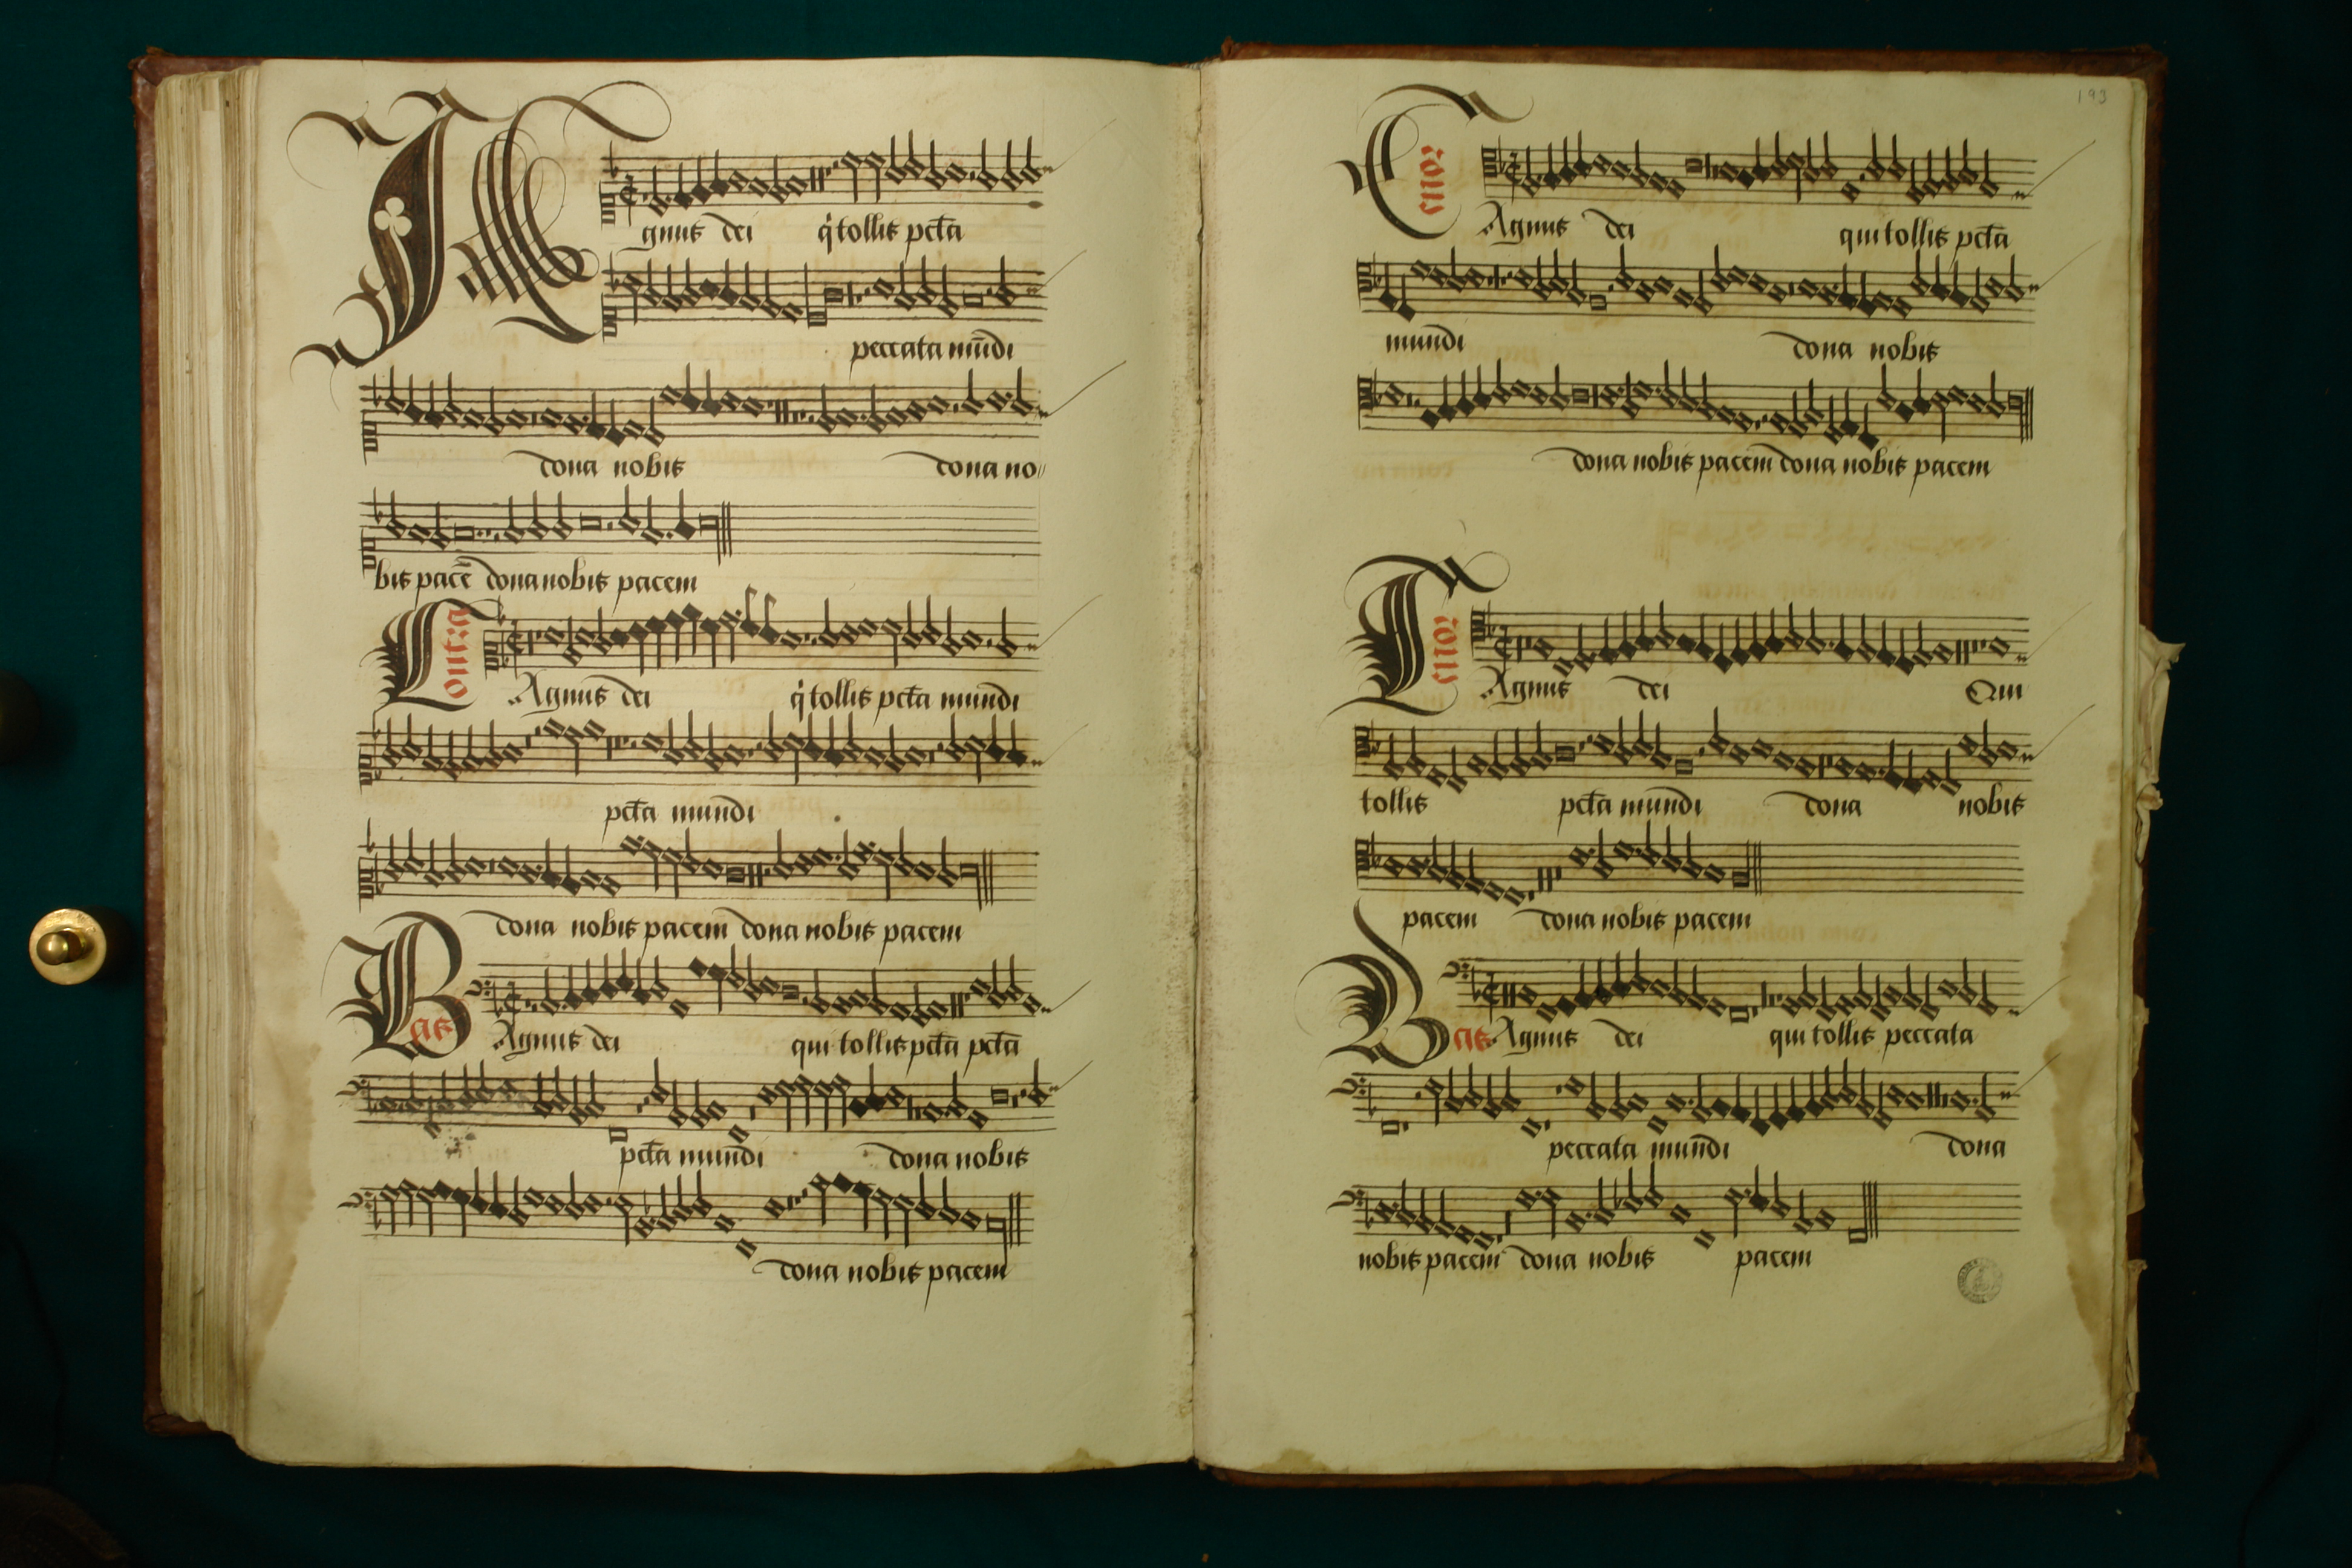 Agnus dei q̇ tollis pctā
peccata mūdi
dona nobis dona no
bis pacē dona nobis pacem
Contra
Agnus dei q̇ tollis pctā mundi
pctā mundi
dona nobis pacem dona nobis pacem
Bas
Agnus dei qui tollis pctā pctā
pctā mundi dona nobis
dona nobis pacem
193
Tenor
Agnus dei qui tollis pctā
mundi dona nobis
dona nobis pacem dona nobis pacem
Tenor
Agnus dei Qui
tollis pctā mundi dona nobis
pacem dona nobis pacem
Bas
Agnus dei qui tollis peccata
peccata mundi dona
nobis pacem dona nobis pacem